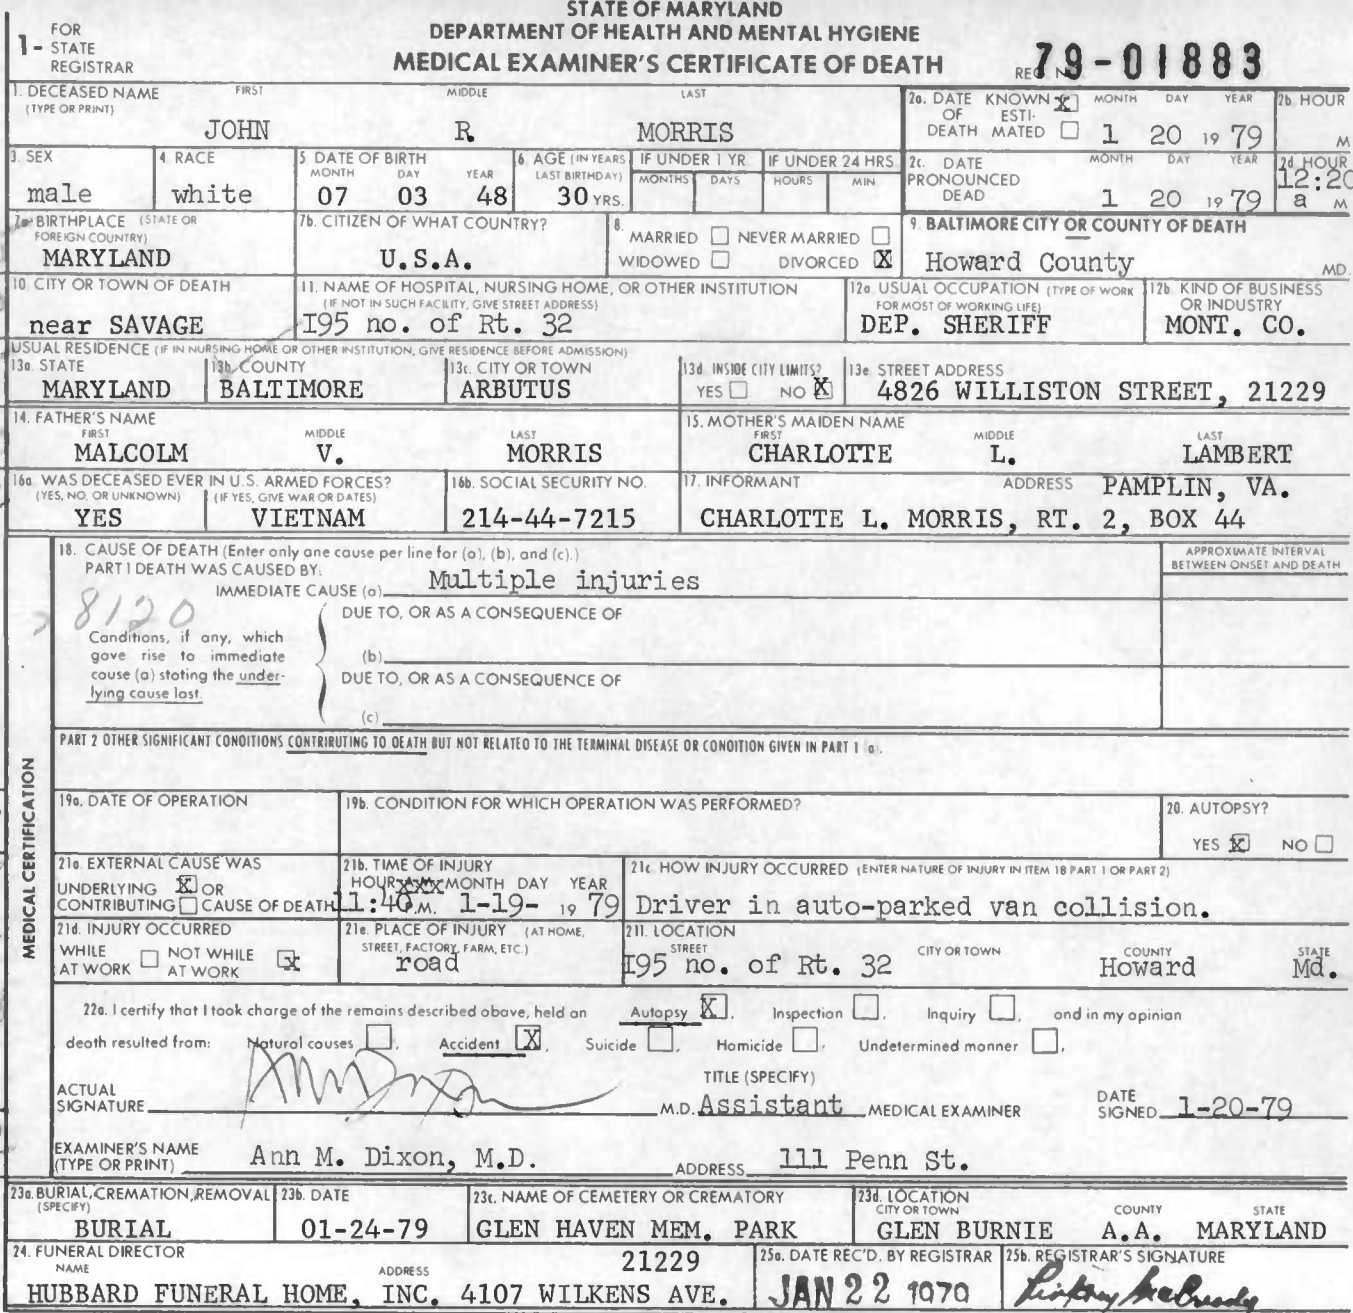 STATE OF MARYLAND
DEPARTMENT OF HEALTH AND MENTAL HYGIENE
MEDICAL EXAMINER'S CERTIFICATE OF DEATH
1- FOR STATE REGISTRAR
REG N 79-01883
1. DECEASED NAME (TYPE OR PRINT) FIRST MIDDLE LAST
JOHN R MORRIS
2a. DATE OF DEATH KNOWN X ESTI-MATED MONTH DAY YEAR 1 20 19 79
2b. HOUR M
3. SEX male
4. RACE white
5. DATE OF BIRTH MONTH DAY YEAR 07 03 48
6. AGE (IN YEARS LAST BIRTHDAY) 30 YRS.
IF UNDER 1 YR. MONTHS DAYS
IF UNDER 24 HRS. HOURS MIN
2c. DATE PRONOUNCED DEAD MONTH DAY YEAR 1 20 19 79
2d. HOUR 12:20 a M
7a. BIRTHPLACE (STATE OR FOREIGN COUNTRY) MARYLAND
7b. CITIZEN OF WHAT COUNTRY? U.S.A.
8. MARRIED NEVER MARRIED WIDOWED DIVORCED X
9. BALTIMORE CITY OR COUNTY OF DEATH Howard County MD.
10. CITY OR TOWN OF DEATH near SAVAGE
11. NAME OF HOSPITAL, NURSING HOME, OR OTHER INSTITUTION (IF NOT IN SUCH FACILITY, GIVE STREET ADDRESS) I95 no. of Rt. 32
12a. USUAL OCCUPATION (TYPE OF WORK FOR MOST OF WORKING LIFE) DEP. SHERIFF
12b. KIND OF BUSINESS OR INDUSTRY MONT. CO.
USUAL RESIDENCE (IF IN NURSING HOME OR OTHER INSTITUTION, GIVE RESIDENCE BEFORE ADMISSION)
13a. STATE MARYLAND
13b. COUNTY BALTIMORE
13c. CITY OR TOWN ARBUTUS
13d. INSIDE CITY LIMITS? YES NO X
13e. STREET ADDRESS 4826 WILLISTON STREET, 21229
14. FATHER'S NAME FIRST MIDDLE LAST
MALCOLM V. MORRIS
15. MOTHER'S MAIDEN NAME FIRST MIDDLE LAST
CHARLOTTE L. LAMBERT
16a. WAS DECEASED EVER IN U.S. ARMED FORCES? (YES, NO, OR UNKNOWN) (IF YES, GIVE WAR OR DATES)
YES VIETNAM
16b. SOCIAL SECURITY NO. 214-44-7215
17. INFORMANT ADDRESS PAMPLIN, VA.
CHARLOTTE L. MORRIS, RT. 2, BOX 44
MEDICAL CERTIFICATION
18. CAUSE OF DEATH (Enter only one cause per line for (a), (b), and (c).)
APPROXIMATE INTERVAL BETWEEN ONSET AND DEATH
PART 1 DEATH WAS CAUSED BY:
IMMEDIATE CAUSE (a) Multiple injuries
8120
DUE TO, OR AS A CONSEQUENCE OF
Conditions, if any, which gave rise to immediate cause (a) stating the under-lying cause last.
(b)
DUE TO, OR AS A CONSEQUENCE OF
(c)
PART 2 OTHER SIGNIFICANT CONDITIONS CONTRIBUTING TO DEATH BUT NOT RELATED TO THE TERMINAL DISEASE OR CONDITION GIVEN IN PART 1 (a).
19a. DATE OF OPERATION
19b. CONDITION FOR WHICH OPERATION WAS PERFORMED?
20. AUTOPSY? YES X NO
21a. EXTERNAL CAUSE WAS UNDERLYING X OR CONTRIBUTING CAUSE OF DEATH
21b. TIME OF INJURY HOUR xxx MONTH DAY YEAR 11:40 P.M. 1-19- 19 79
21c. HOW INJURY OCCURRED (ENTER NATURE OF INJURY IN ITEM 18 PART 1 OR PART 2)
Driver in auto-parked van collision.
21d. INJURY OCCURRED WHILE AT WORK NOT WHILE AT WORK x
21e. PLACE OF INJURY (AT HOME, STREET, FACTORY, FARM, ETC.) road
21f. LOCATION STREET CITY OR TOWN COUNTY STATE
I95 no. of Rt. 32 Howard Md.
22a. I certify that I took charge of the remains described above, held an Autopsy X, Inspection, Inquiry, and in my opinion
death resulted from: Natural causes, Accident X, Suicide, Homicide, Undetermined manner.
ACTUAL SIGNATURE M.D. TITLE (SPECIFY) Assistant MEDICAL EXAMINER DATE SIGNED 1-20-79
EXAMINER'S NAME (TYPE OR PRINT) Ann M. Dixon, M.D. ADDRESS 111 Penn St.
23a. BURIAL, CREMATION, REMOVAL (SPECIFY) BURIAL
23b. DATE 01-24-79
23c. NAME OF CEMETERY OR CREMATORY GLEN HAVEN MEM. PARK
23d. LOCATION CITY OR TOWN COUNTY STATE GLEN BURNIE A.A. MARYLAND
24. FUNERAL DIRECTOR NAME ADDRESS 21229
HUBBARD FUNERAL HOME, INC. 4107 WILKENS AVE.
25a. DATE REC'D. BY REGISTRAR JAN 22 1979
25b. REGISTRAR'S SIGNATURE